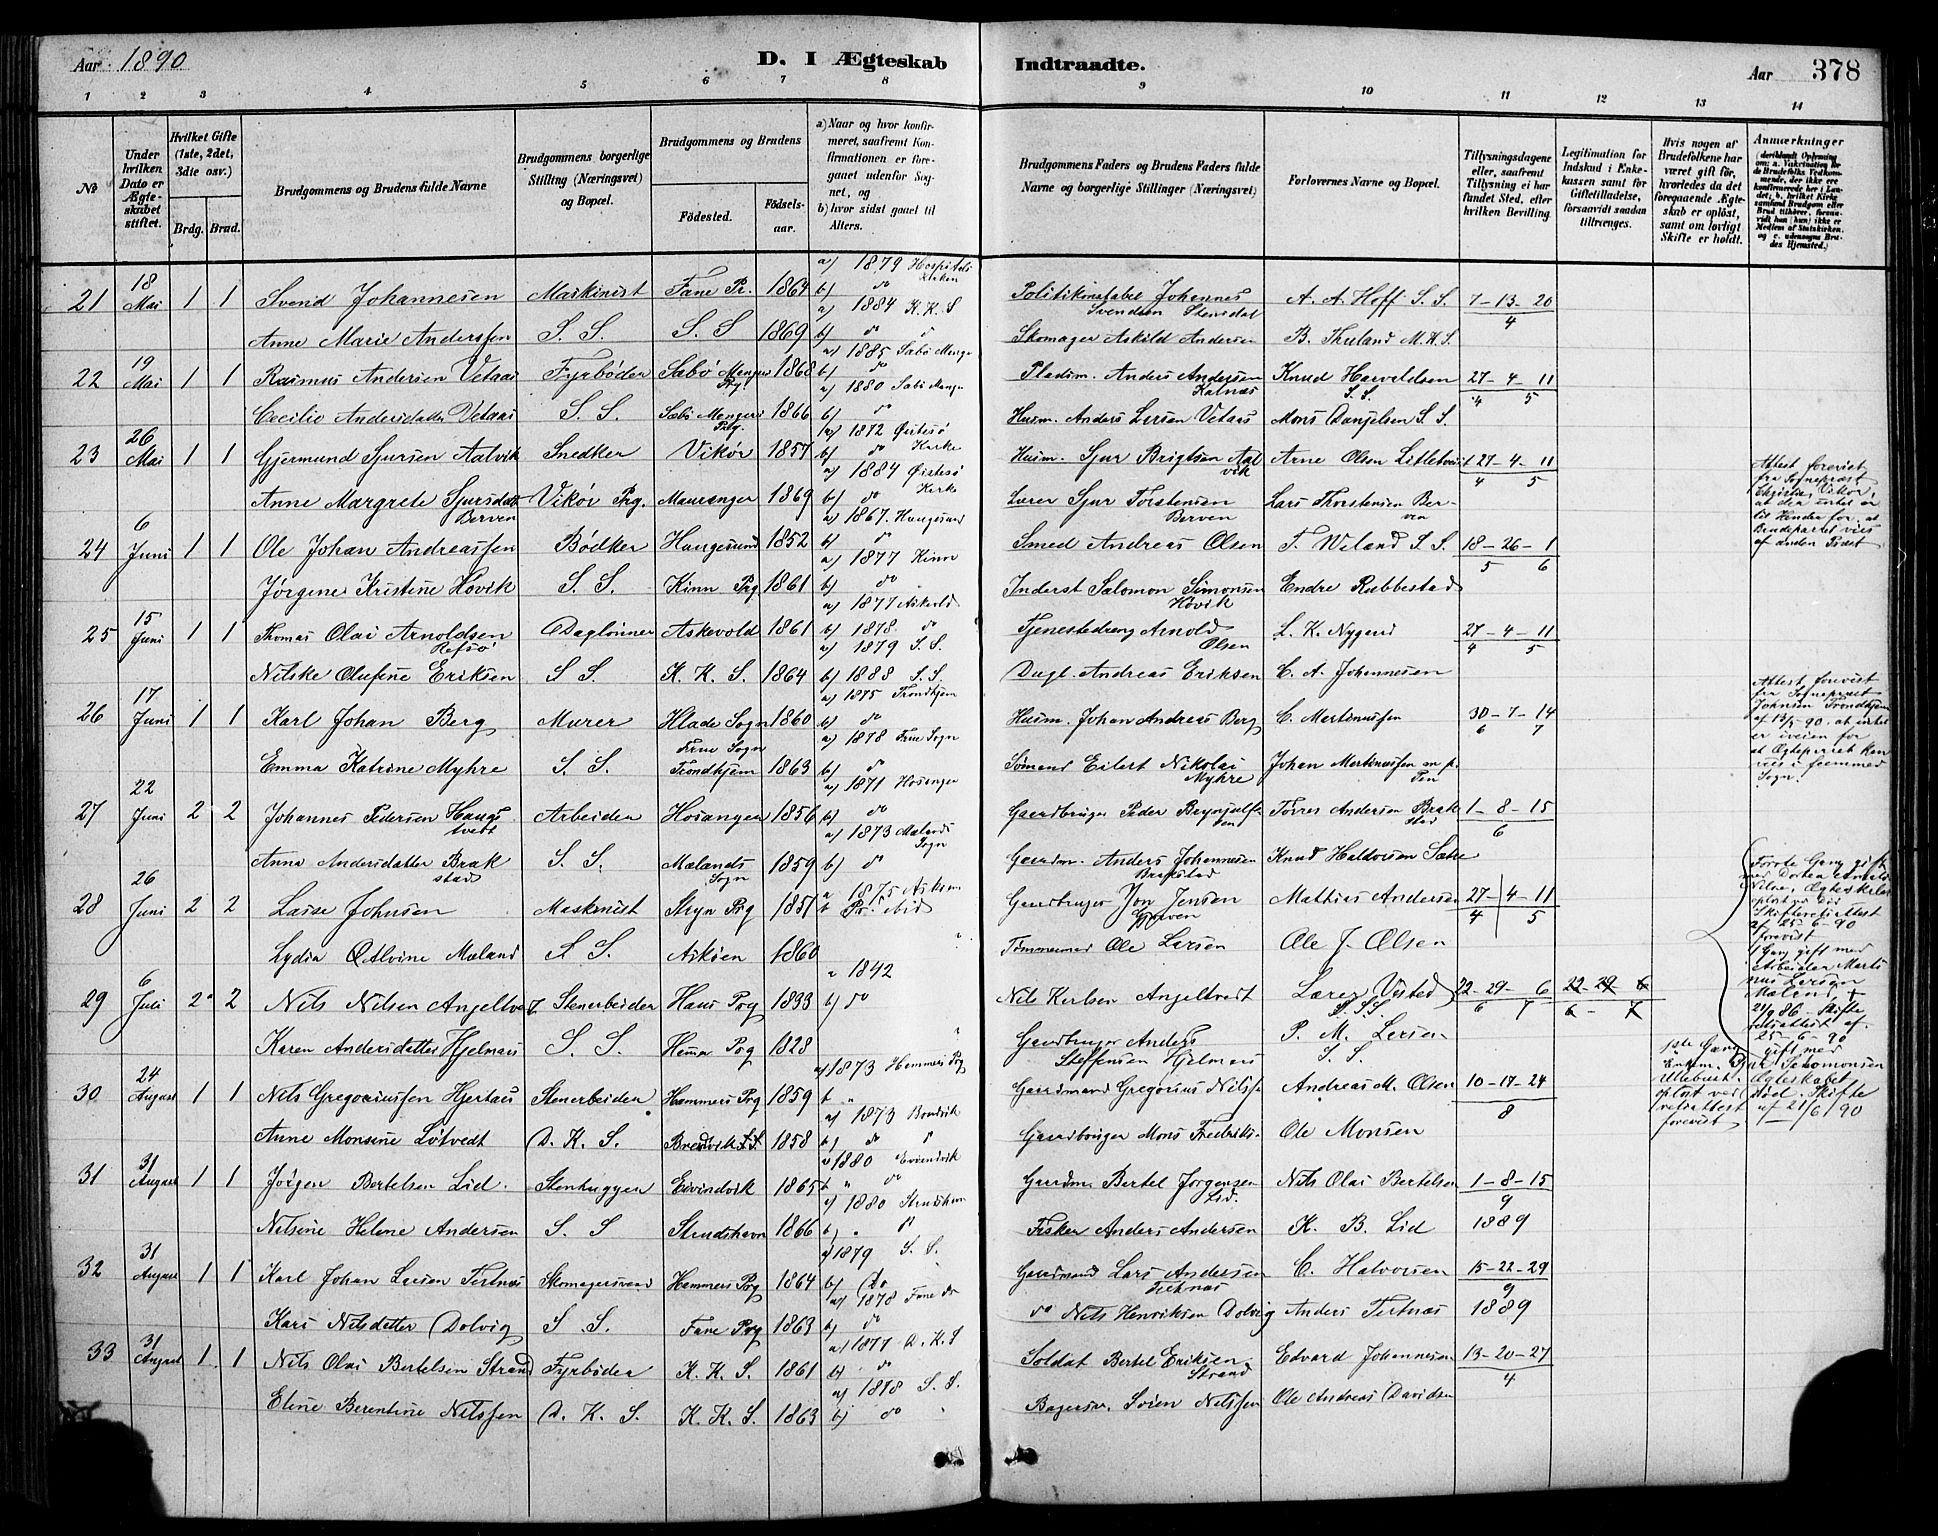 Aar 1890
D. I Ægteskab
Indtraadte.
Aar 378
1 2 3 4 5 6 7 8 9 10 11 12 13 14
No
Under hvilken Dato er Ægteskabet stiftet.
Hvilket Gifte (1ste, 2det, 3die osv.)
Brdg. Brud.
Brudgommens og Brudens fulde Navne
Brudgommens borgerlige Stilling (Næringsvei) og Bopæl.
Brudgommens og Brudens
Födested. Födselsaar.
a) Naar og hvor konfirmeret, saafremt Konfirmationen er foregaaet udenfor Sognet, og
b) hvor sidst gaaet til Alters.
Brudgommens Faders og Brudens Faders fulde Navne og borgerlige Stillinger (Næringsvei)
Forlovernes Navne og Bopæl.
Tillysningsdagene eller, saafremt Tillysning ei har fundet Sted, efter hvilken Bevilling.
Legitimation for Indskud i Enkekassen samt for Giftetilladelse, forsaavidt saadan tiltrænges.
Hvis nogen af Brudefolkene har været gift før, hvorledes da det foregaaende Ægteskab er oplöst, samt om lovligt Skifte er holdt.
Anmærkninger
21 18 Mai 1 1 Svend Johannesen Maskinist Fane Pr. 1864 a) 1879 Hospitals Kirken b) do Politikonstabel Johannes Svendsen Stensdal A. A. Hoff S. S. 7-13-20 4
Anne Marie Anderssen S. S. S. S 1869 a) 1884 K. K. S b) do Skomager Askild Andersen B. Thuland M.K.S.
22 19 Mai 1 1 Rasmus Andersen Vetaas Fyrbøder Sæbø Manger Prg 1868 a) 1885 Sæbø Manger b) do Pladsm. Anders Andersen Kalnæs Knud Harveldsen S. S. 27-4-11 4 5
Cecilie Andersdatter Vetaas S. S. Sæbø Mangers Prg. 1866 a) 1880 Sæbø Manger b) do Husm. Anders Larsen Vetaas Mons Danjelsen S. S.
23 26 Mai 1 1 Gjermund Sjursen Aalvik Snedker Vikør 1857 a) 1872 Østesø Kirke b) do Husm. Sjur Brigtsen Aalvik Arne Olsen 27-4-11 4 5
Anne Margrete Sjursdatter Berven Vikør Prg. Mauranger 1869 a) 1884 Østesø Kirke b) do Lærer Sjur Torstensen Berven Lars Thorstensen Berven
24 6 Juni 1 1 Ole Johan Andreassen Bødker Haugesund 1852 a) 1867. Haugesund b) do Smed Andreas Olsen T. Wiland S. S. 18-26-1 5 6
Jørgine Kristine Høvik S. S. Kinn Prg 1861 a) 1877 Kinn b) do Inderst Salomon Simonsen Høvik Endre Rubbestad
25 15 Juni 1 1 Thomas Olai Arnoldsen Refsø Daglønner Askevold 1861 a) 1877 b) 1878. do Tjenestedreng Arnold Olsen L. K. Nygerd 27-4-11 4 5
Nilske Olufine Eriksen S S. K. K. S. 1864 a) 1879 S. S. b) 1888 S. S. Dagl. Andreas Eriksen C. A. Johannesen
26 17 Juni 1 1 Karl Johan Berg Murer Hlade Sogn 1860 a) 1875 Trondhjem b) do Husm. Johan Andreas Berg C. Martinussen 30-7-14 6 7
Emma Katrine Myhre S. S. Frue Sogn Trondhjem 1863 a) 1878 Frue Sogn b) do Sømand Eilert Nikolai Myhre Johan Martinussen
27 22 Juni 2 2 Johannes Pedersen Haugstvedt Arbeider Hosanger 1856 a) 1871 Hosanger b) do Gaardbruger Peder Brynjulfsen Torres Andersen Brakstad 1-8-15 6
Anna Andersdatter Brakstad S. S. Mælands Sogn 1859 a) 1873 Mælands Sogn b) do Gaardm. Anders Johannesen Brakstad Knud Haldorsen Sætre
28 26 Juni 2 2 Lasse Johnsen Maskinist Stryn Prg 1851 a 1875 Askøen Gaardbruger Jon Jensen Mathias Andersen 27-4-11 4 5
Lydia Mæland S S. Askøen 1860 Tømmermand Ole Larsen Ole J. Olsen
29 6 Juli 2 2 Nils Nilsen Angeltvedt Stenarbeider Haus Prg 1833 1842 b) do Nils Karlsen Angeltvedt Lærer Visted S. S. 22-29-6 6 7 22-29-6 6-7
Karen Andersdatter Hjelmaas S. S. Prg 1828 Gaardbruger Anders Steffensen Hjelmaas P. M. Larsen S. S.
30 24 August 1 1 Nils Gregoriussen Hjertaas Stenarbeider Hammers Prg 1859 a) 1873 Hammers Prg Gaardmand Gregorius Nilss. Andreas M. Olsen 10-17-24 8
Anne Monsine Løtvedt D. K. S. S. S. 1858 a) 1873 b) do Gaardbruger Mons Fredriks. Ole Monsen
31 31 August 1 1 Jørgen Bertelsen Lid. Stenhugger Evindvik 1865 a) 1880 Evindvik Gaardm. Bertel Jørgensen Lid. Nils Olai Bertelsen 1-8-15 9
Nilsine Helene Andersen S. S Strudshavn 1866 a) 1880 Strudshavn Fisker Anders Andersen K. B. Lid 1889
32 31 August 1 1 Karl Johan Larsen Tertnæs Skomagersvend Hammers Prg 1864 a) 1879 S. S. b) Do Gaardmand Lars Andersen Tertnæs C. Halvorsen 15-22-29 9
Kari Nilsdatter Dolvig S. S. Fane Prg 1863 a) 1878 Fane b) do do Nils Henriksen Dolvig Anders Tertnæs 1889
33 31 August 1 1 Nils Olai Bertelsen Strand Fyrbøder K. K. S. 1861 a) 1877 K. S b) do Soldat Bertel Eriksen Strand Edvard Johannesen 13-20-27 4
Eline Berentine Nilssen D. K. S. K. K. S. 1863 a) 1878 S. S. b) do Bagersv. Søren Nilssen Ole Andreas Davidsen
Attest forevist fra Sognepræst Vikør, at der intet er til Hinder for, at Brudeparret vies af anden Præst
Attest forevist fra Sognepræst Johnsen Trondhjem af 13/5 90. at intet er iveien for at Ægteparret kan vies i fremmed Sogn.
Første Gang gift med Dortea Ægteskabet opløst ved Død Skifteretsattest af 25-6-90 forevist
1 Gang gift med Arbeider Martinus Larsen Mæland + 21/9 86. Skifteretsattest af. 25-6-90
1ste Gang gift med Salomonsen Ullebust. Ægteskabet opløst ved Død. Skifteretsattest af 21/6/90 forevist